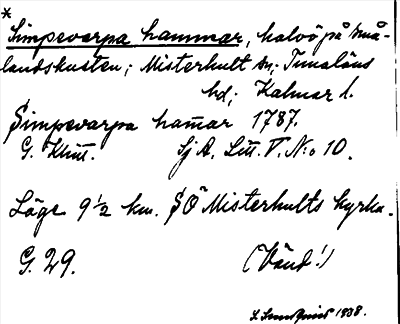 *
Simpevarpa hammar, halvö på små-
landskusten; Misterhult sn; Tunaläns
hd; Kalmar l.
Simpevarpa ham̄ar 1787.
G. Klint. Sj A. Litt. V. No 10.
Läge 9 1/2 km. SÖ Misterhults kyrka.
G. 29. (Vänd!)
1938.